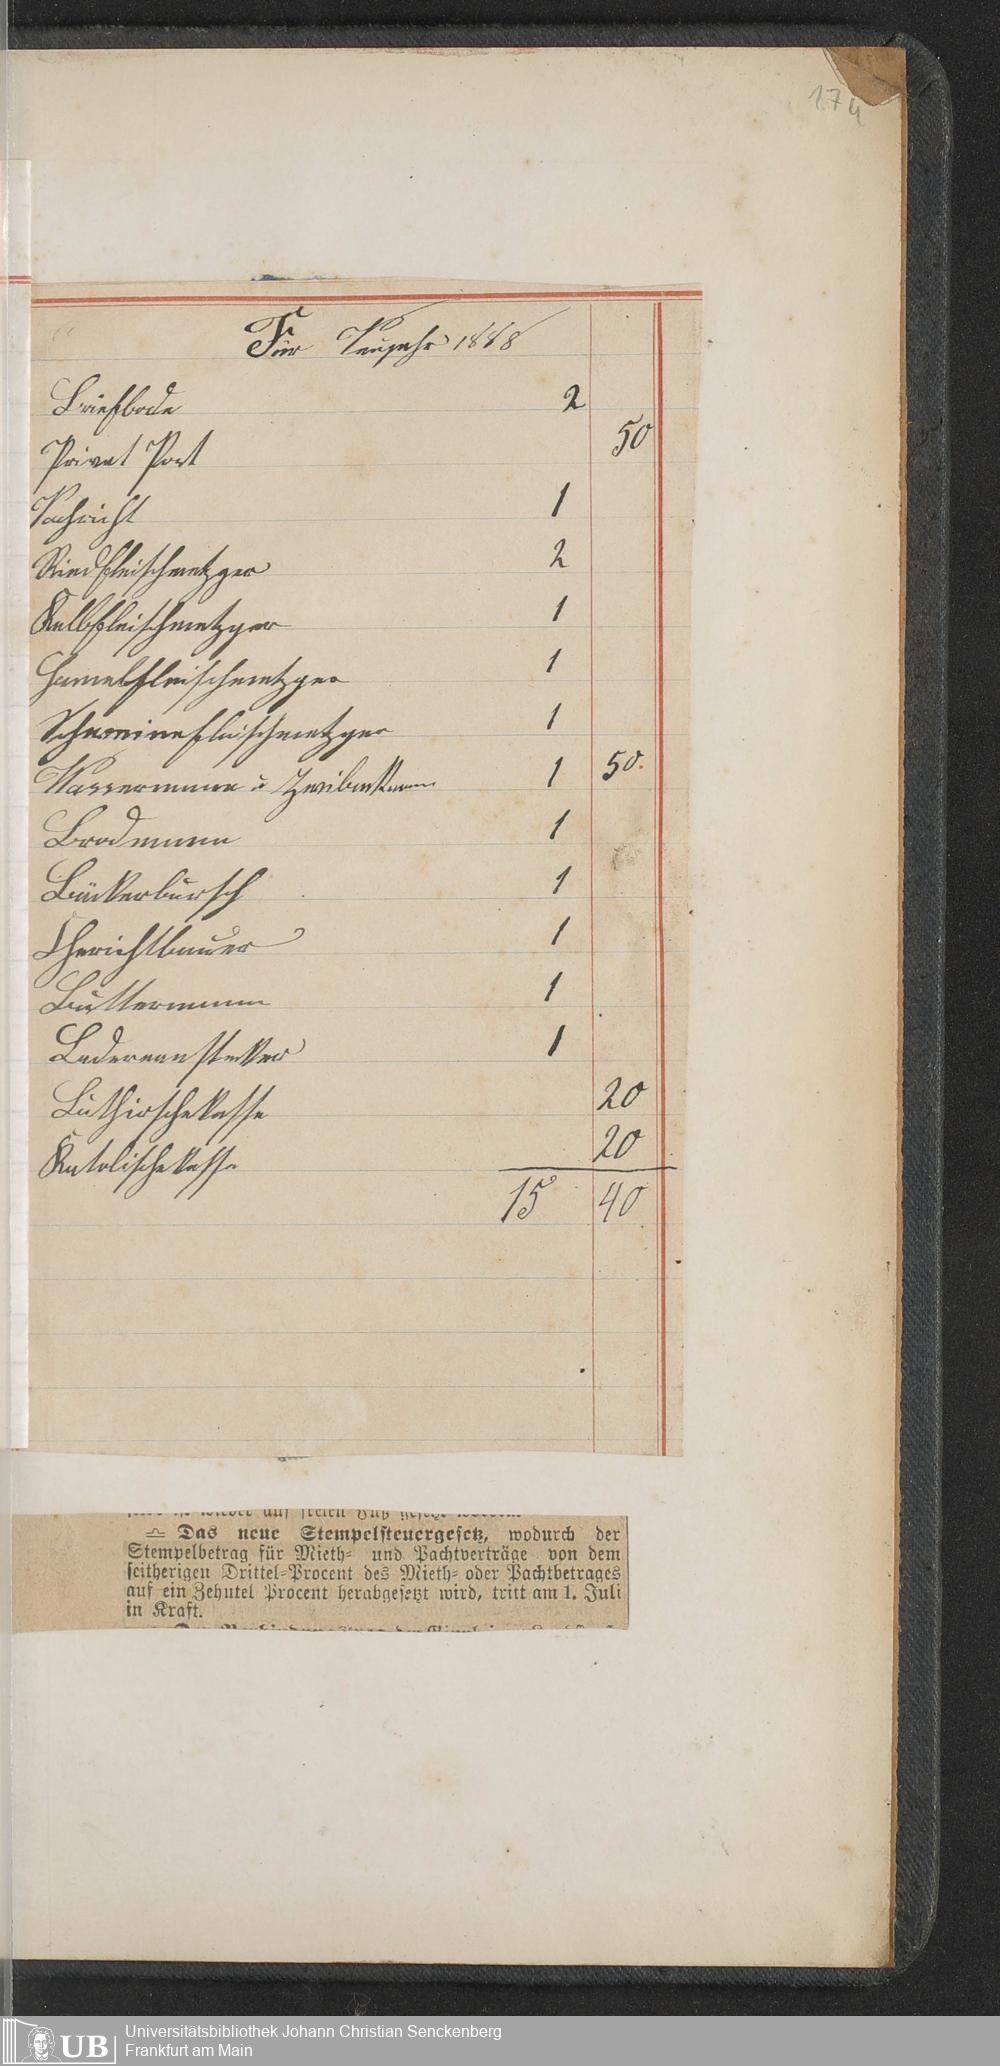 174
Für Neujahr 1888
Briefbode 2
Privat Post 50
Nachricht 1
Rindfleischmetzger 2
Kalbfleischmetzger 1
Hamelfleischmetzger 1
Schweinefleischmetzger 1
Wassermann u 1 50.
Brodmann 1
Bäckerbursch 1
1
Buttermann 1
1
Luthirschekasse 20
Katolischekasse 20
15 40
wieder auf freien Fuß gesetzt worden.
Das neue Stempelsteuergesetz, wodurch der
Stempelbetrag für Mieth- und Pachtverträge von dem
seitherigen Drittel-Procent des Mieth- oder Pachtbetrages
auf ein Zehntel Procent herabgesetzt wird, tritt am 1. Juli
in Kraft.
UB
Universitätsbibliothek Johann Christian Senckenberg
Frankfurt am Main